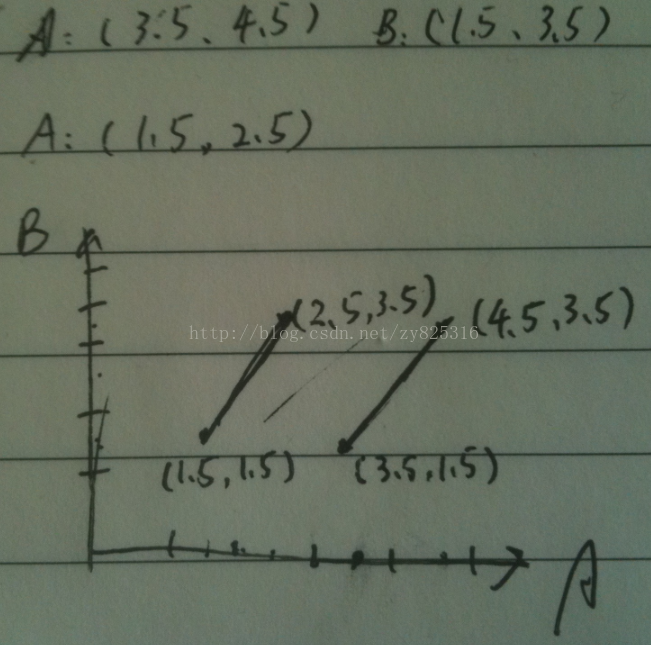 A: (3.5、4.5) B: (1.5、3.5)
A: (1.5, 2.5)
B
(2.5,3.5) (4.5,3.5)
http://blog.csdn.net/zy825316
(1.5,1.5) (3.5,1.5)
A